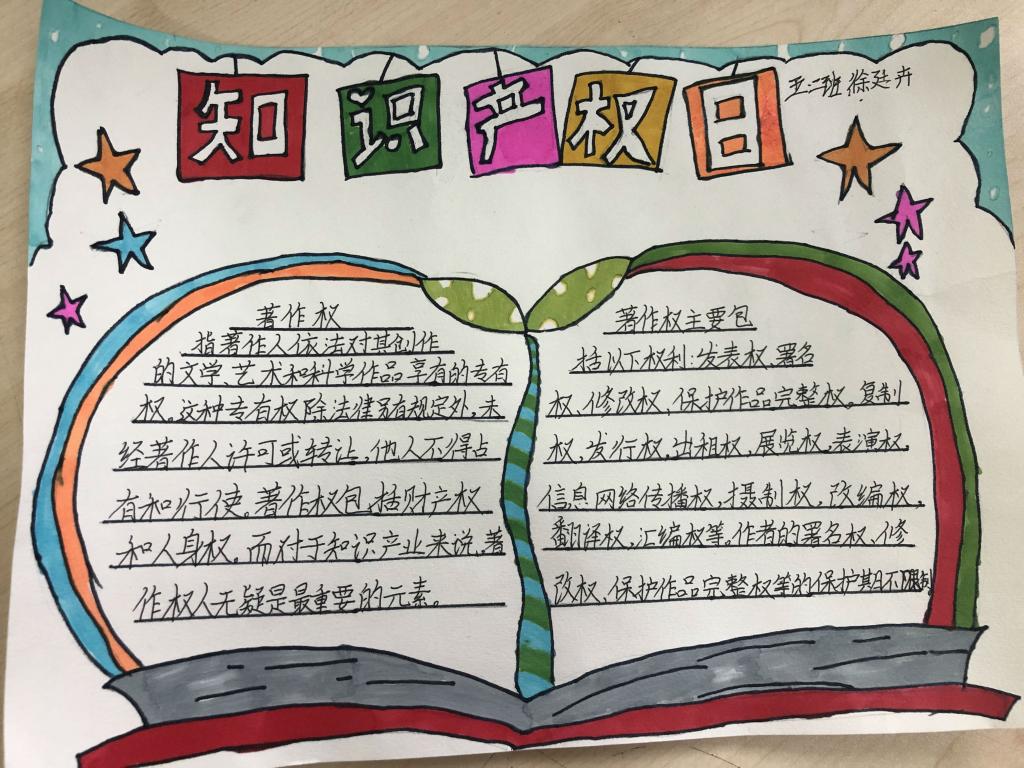 知识产权日
五二班 徐廷卉
著作权
指著作人依法对其创作
的文学、艺术和科学作品享有的专有
权。这种专有权除法律另有规定外，未
经著作人许可或转让，他人不得占
有和行使。著作权包括财产权
和人身权。而对于知识产业来说，著
作权人无疑是最重要的元素。
著作权主要包
括以下权利：发表权、署名
权、修改权、保护作品完整权。复制
权、发行权、出租权、展览权、表演权、
信息网络传播权、摄制权、改编权、
翻译权、汇编权等。作者的署名权、修
改权、保护作品完整权等的保护期不限制